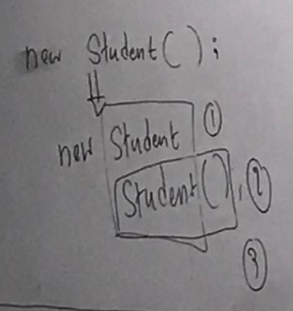 new Student();
new Student ①
Student(), ②
③